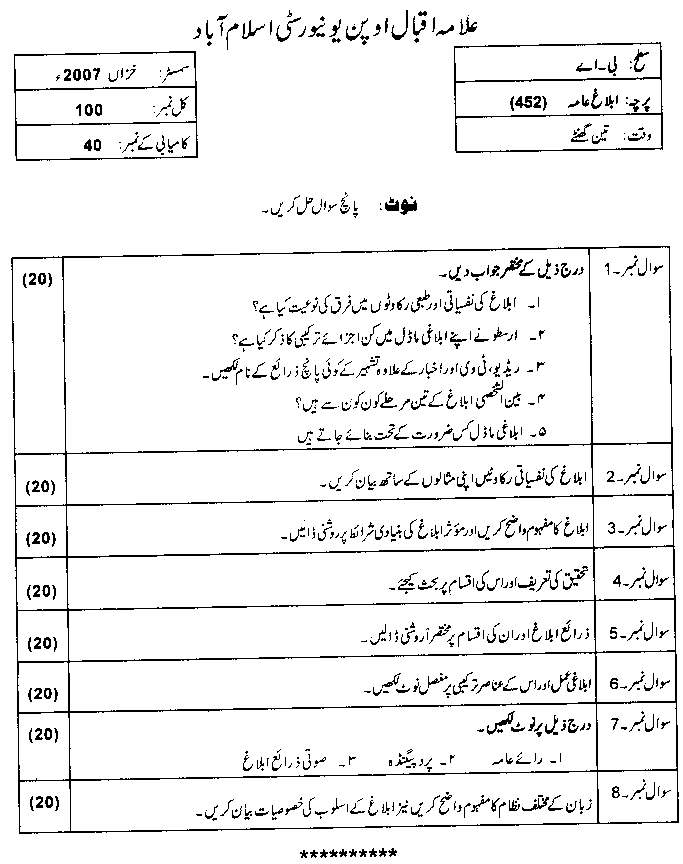 علامہ اقبال اوپن یونیورسٹی اسلام آباد
سطح: بی۔اے
پرچہ: ابلاغ عامہ (452)
وقت: تین گھنٹے
سمسٹر: خزاں 2007ء
کل نمبر: 100
کامیابی کے نمبر: 40
نوٹ: پانچ سوال حل کریں۔
سوال نمبر۔1 درج ذیل کے مختصر جواب دیں۔ (20)
۱۔ ابلاغ کی نفسیاتی اور طبعی رکاوٹوں میں فرق کی نوعیت کیا ہے؟
۲۔ ارسطو نے اپنے ابلاغی ماڈل میں کن اجزائے ترکیبی کا ذکر کیا ہے؟
۳۔ ریڈیو، ٹی وی اور اخبار کے علاوہ تشہیر کے کوئی پانچ ذرائع کے نام لکھیں۔
۴۔ بین الشخصی ابلاغ کے تین مرحلے کون کون سے ہیں؟
۵۔ ابلاغی ماڈل کس ضرورت کے تحت بنائے جاتے ہیں
سوال نمبر۔2 ابلاغ کی نفسیاتی رکاوٹیں اپنی مثالوں کے ساتھ بیان کریں۔ (20)
سوال نمبر۔3 ابلاغ کا مفہوم واضح کریں اور مؤثر ابلاغ کی بنیادی شرائط پر روشنی ڈالیں۔ (20)
سوال نمبر۔4 تحقیق کی تعریف اور اس کی اقسام پر بحث کیجئے۔ (20)
سوال نمبر۔5 ذرائع ابلاغ اور ان کی اقسام پر مختصراً روشنی ڈالیں۔ (20)
سوال نمبر۔6 ابلاغی عمل اور اس کے عناصر ترکیبی پر مفصل نوٹ لکھیں۔ (20)
سوال نمبر۔7 درج ذیل پر نوٹ لکھیں۔ (20)
۱۔ رائے عامہ ۲۔ پروپیگنڈہ ۳۔ صوتی ذرائع ابلاغ
سوال نمبر۔8 زبان کے مختلف نظام کا مفہوم واضح کریں نیز ابلاغ کے اسلوب کی خصوصیات بیان کریں۔ (20)
**********